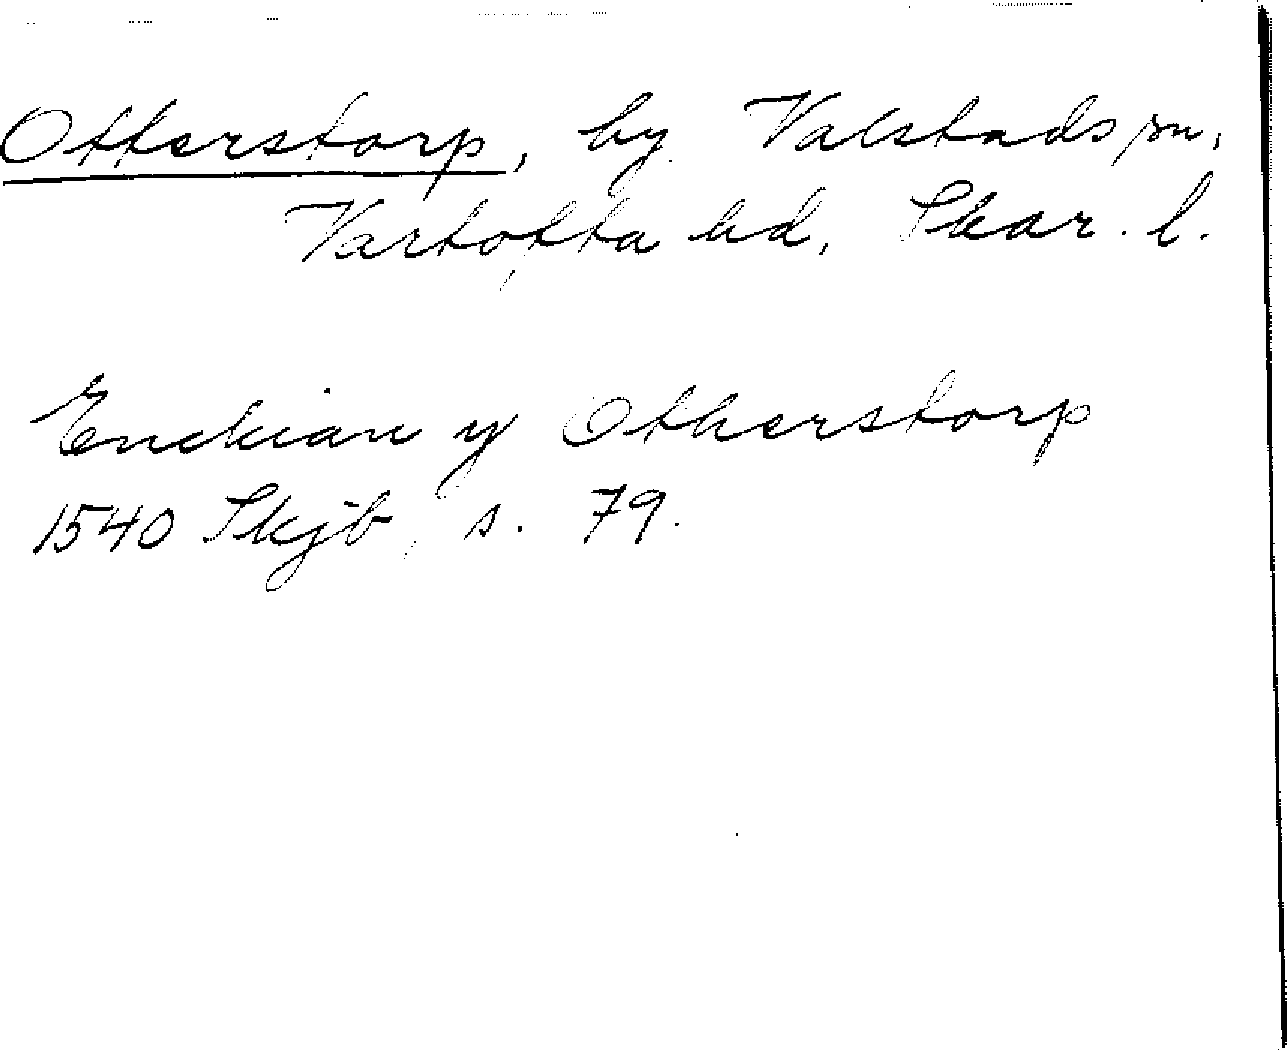 Otterstorp, by Valstads sn,
Vartofta hd, Skar. l.
Enckian y Otherstorp
1540 Skjb, s. 79.